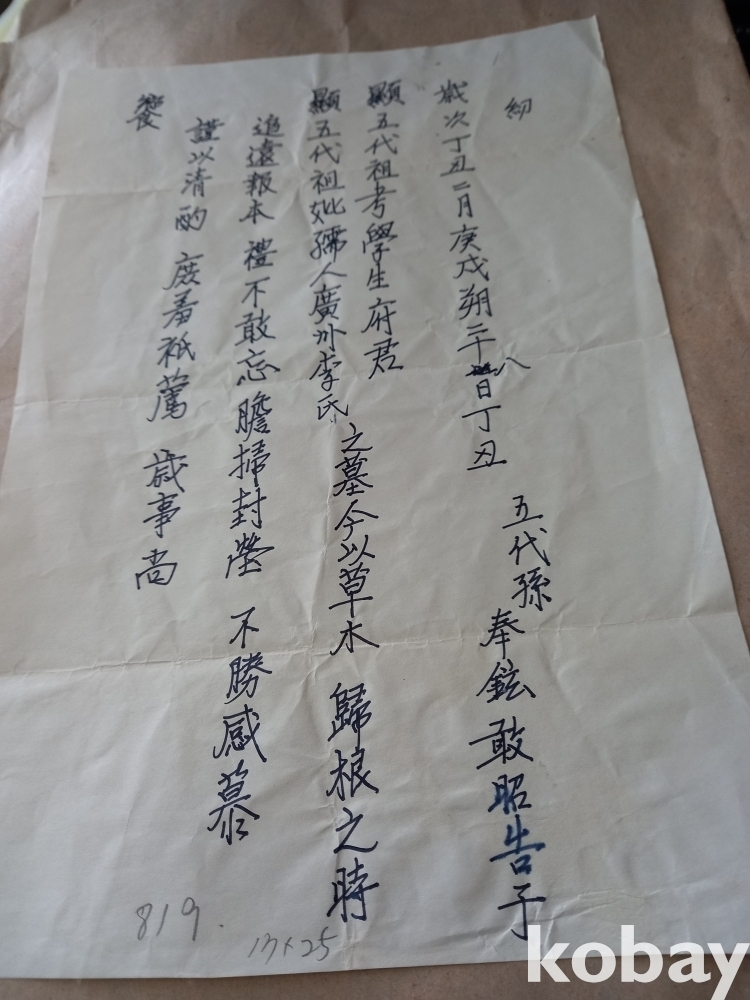 歲次丁丑二月庚戌朔二十八日丁丑 五代孫 奉鉉 敢昭告于
顯五代祖考學生府君
顯五代祖妣孺人廣州李氏 之墓今以草木 歸根之時
追遠報本 禮不敢忘 瞻掃封塋 不勝感慕
謹以清酌 庶羞祇薦 歲事尚
饗
819.
17x25
kobay